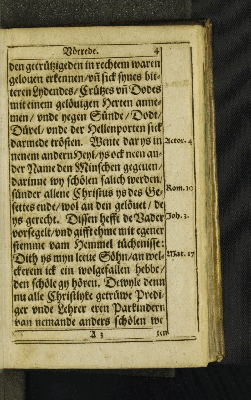 Vörrede. 4
den gecrützigeden in rechtem waren
gelouen erkennen/ vn̄ sick synes bit-
teren Lydendes/ Crützes vn̄ Dodes
mit einem gelöuigen Herten anne-
men/ vnde yegen Sünde/ Dodt/
Düvel/ vnde der Hellenporten sick
darmede trösten. Wente dar ys in Actor. 4
nenem andern Heyl/ ys ock neen an-
der Name den Minschen gegeuen/
darinne wy schölen salich werden/
sünder allene Christus ys des Ge- Rom. 10
settes ende/ wol an den gelöuet/ de
ys gerecht. Dissen hefft de Vader Joh. 3.
vorsegelt/ vnd gifft ehme mit egener
stemme vam Hemmel tüchenisse:
Dith ys myn leeue Söhn/ an wel- Mat. 17
ckerem ick ein wolgefallen hebbe/
den schöle gy hören. Dewyle denn
nu alle Christlyke getrüwe Predi-
ger vnde Lehrer eren Parkindern
van nemande anders schölen we
A 3